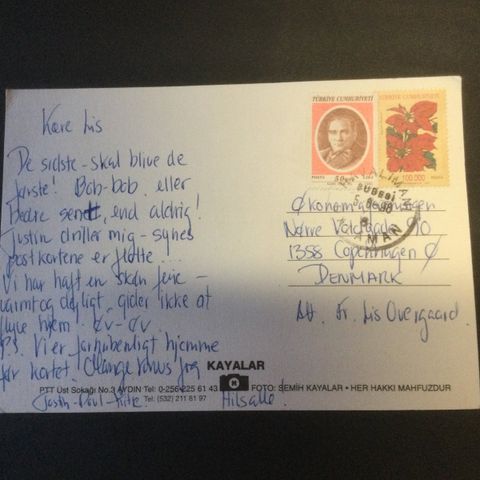 Kære Lis
De sidste - skal blive de
første! Bob-bob eller
Bedre sent, end aldrig!
Justin driller mig - synes
postkortene er flotte ...
Vi har haft en skøn ferie -
varmt og dejligt, gider ikke at
flyve hjem. Øv-Øv.
P.S. Vi er forhåbentligt hjemme
før kortet.
Hilsalle!
TÜRKİYE CUMHURİYETİ
POSTA
TÜRKİYE CUMHURİYETİ
100.000
POSTA
Nørre Voldgade
1358 Copenhagen Ø
DENMARK
Att. Fr. Lis Overgaard.
KAYALAR
PTT Üst Sokağı No.3 AYDIN Tel: 0-256-225 61 43
Tel: (532) 211 81 97
FOTO: SEMİH KAYALAR • HER HAKKI MAHFUZDUR